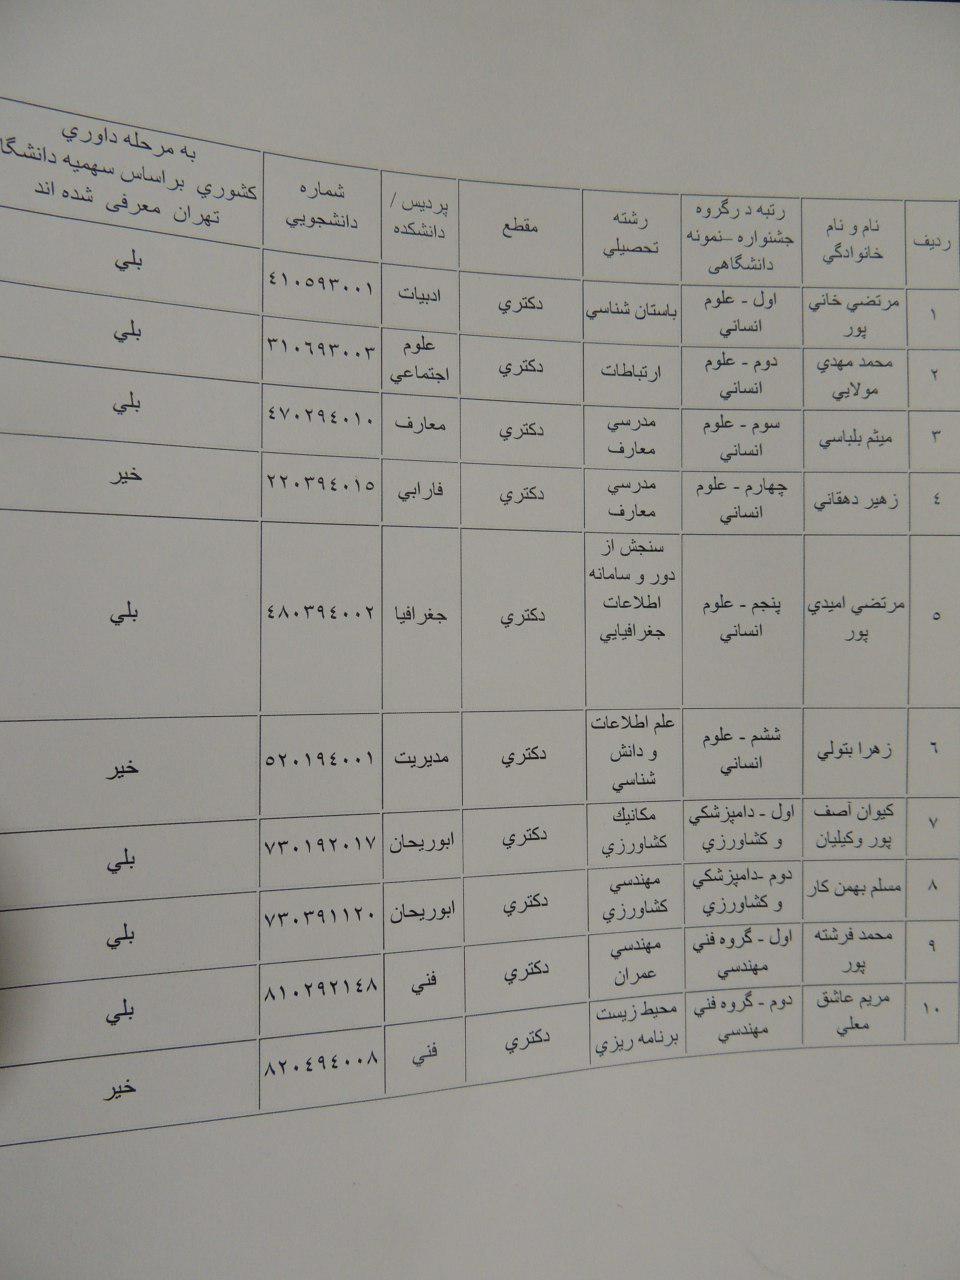 ردیف | نام و نام خانوادگي | رتبه د رگروه جشنواره –نمونه دانشگاهی | رشته تحصيلي | مقطع | پرديس / دانشکده | شماره دانشجويي | به مرحله داوري کشوري براساس سهميه دانشگا تهران معرفی شده اند
١ | مرتضي خاني پور | اول - علوم انساني | باستان شناسي | دکتري | ادبيات | ٤١٠٥٩٣٠٠١ | بلي
٢ | محمد مهدي مولايي | دوم - علوم انساني | ارتباطات | دکتري | علوم اجتماعي | ٣١٠٦٩٣٠٠٣ | بلي
٣ | ميثم بلباسي | سوم - علوم انساني | مدرسي معارف | دکتري | معارف | ٤٧٠٢٩٤٠١٠ | بلي
٤ | زهير دهقاني | چهارم - علوم انساني | مدرسي معارف | دکتري | فارابي | ٢٢٠٣٩٤٠١٥ | خير
٥ | مرتضي اميدي پور | پنجم - علوم انساني | سنجش از دور و سامانه اطلاعات جغرافيايي | دکتري | جغرافيا | ٤٨٠٣٩٤٠٠٢ | بلي
٦ | زهرا بتولي | ششم - علوم انساني | علم اطلاعات و دانش شناسي | دکتري | مديريت | ٥٢٠١٩٤٠٠١ | خير
٧ | کيوان آصف پور وکيليان | اول - دامپزشکي و کشاورزي | مکانيك کشاورزي | دکتري | ابوريحان | ٧٣٠١٩٢٠١٧ | بلي
٨ | مسلم بهمن کار | دوم -دامپزشکي و کشاورزي | مهندسي کشاورزي | دکتري | ابوريحان | ٧٣٠٣٩١١٢٠ | بلي
٩ | محمد فرشته پور | اول - گروه فني مهندسي | مهندسي عمران | دکتري | فني | ٨١٠٢٩٢١٤٨ | بلي
١٠ | مريم عاشق معلي | دوم - گروه فني مهندسي | محيط زيست برنامه ريزي | دکتري | فني | ٨٢٠٤٩٤٠٠٨ | خير